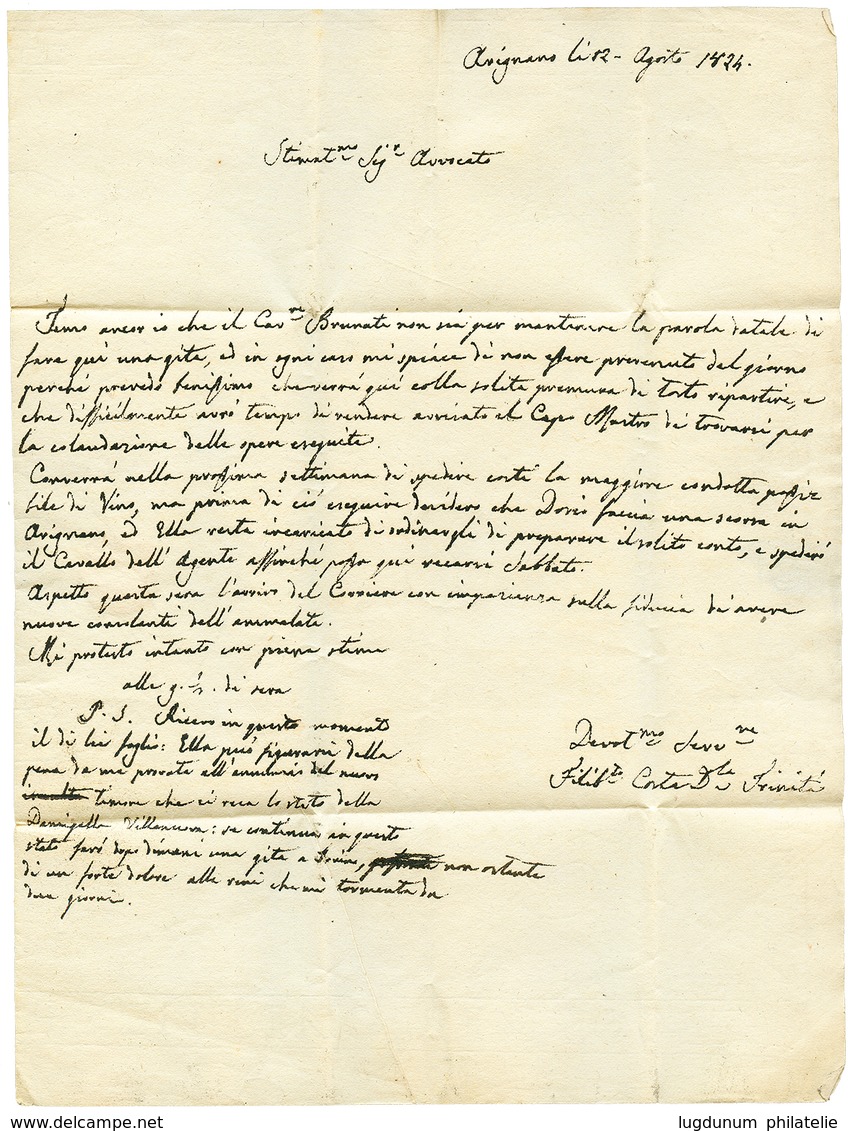 Arignano li 12 - Agosto 1824.
Stimat.mo Sig.r Avvocato
Temo ancor io che il Cav.re Brunati non sia per mantenere la parola datale di
fare qui una gita, ed in ogni caso mi spiace di non essere prevenuto del giorno
perché prevedo benissimo che verrá qui colla solita premura di tosto ripartire, e
che difficilmente avró tempo di rendere avvisato il Capo Mastro di trovarsi per
la colaudazione delle opere eseguite.
Converrá nella prossima settimana di spedire costi la maggiore condotta possi=
bile di Vino, ma prima di ció eseguire desidero che Dovis faccia una scorsa in
Arignano, ed Ella resta incaricato di ordinargli di preparare il solito conto, e spediró
il Cavallo dell' Agente affinché possa qui recarsi Sabbato.
Aspetto questa sera l'arrivo del Corriere con impazienza sulla fiducia di avere
nuove consolanti dell' ammalata.
Mi protesto intanto con piena stima
alle 9. ½. di sera
P. S. Ricevo in questo momento
il di lei foglio: Ella può figurarsi della
pena da me provata all'annunzio del nuovo
timore che ci reca lo stato della
Damigella Villanova: se continua in questo
stato faró dopo dimani una gita a Torino, non ostante
di un forte dolore alle reni che mi tormenta da
due giorni.
Devot.mo Serv.re
Filib.to Costa D.la Trinitá
www.delcampe.net
lugdunum philatelie